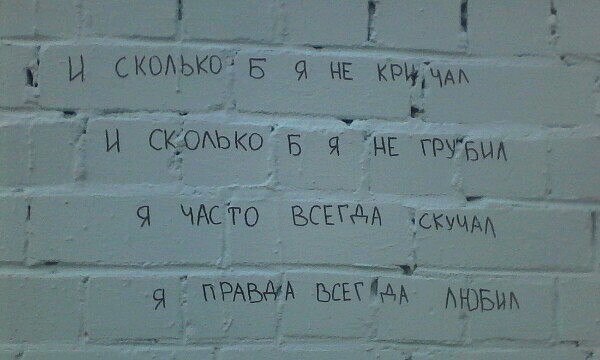 И СКОЛЬКО Б Я НЕ КРИЧАЛ
И СКОЛЬКО Б Я НЕ ГРУБИЛ
Я ЧАСТО ВСЕГДА СКУЧАЛ
Я ПРАВДА ВСЕГДА ЛЮБИЛ